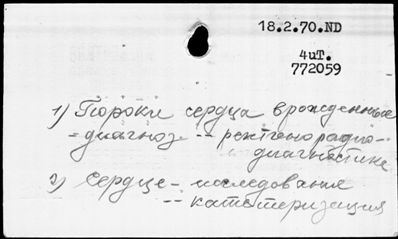 18.2.70.ND
4иТ.
772059
1) Пороки сердца врожденные
- диагноз -- рентгенорадио-
диагностика
2) Сердце - исследования
-- катетеризация